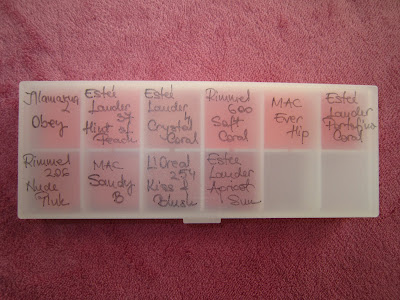 Illamasqua
Obey
Esteé
Lauder
Hint of
Peach
Esteé
Lauder
Crystal
Coral
Rimmel
600
Soft
Coral
MAC
Ever
Hip
Esteé
Lauder
Portofino
Coral
Rimmel
206
Nude
Pink
MAC
Sandy
B
L'Oreal
254
Kiss &
Blush
Esteé
Lauder
Apricot
Sun